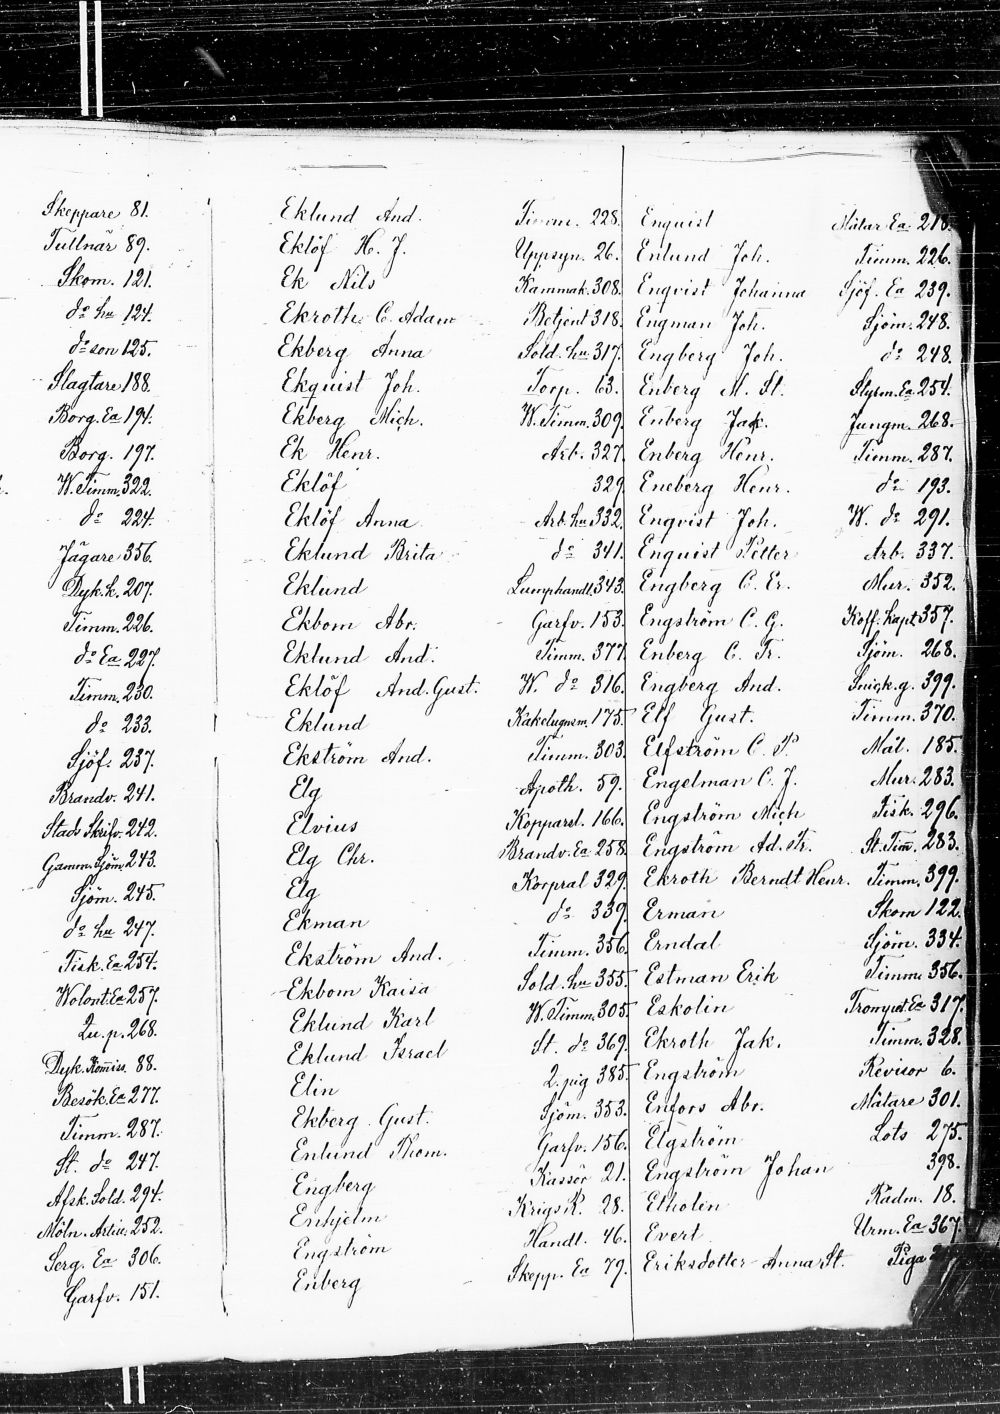 Skeppare 81.
Tullnär 89.
Skom. 121.
do hu 124.
do son 125.
Slagtare 188.
Borg. Ea 194.
Borg. 197.
W. Timm. 322.
do 224.
Jägare 356.
Dyk. k. 207.
Timm. 226.
do Ea 227.
Timm. 230.
do 233.
Sjöf. 237.
Brandv. 241.
Stads Skrifv. 242.
Gamm. Sjöm 243.
Sjöm. 245.
do hu 247.
Fisk. Ea 254.
Wolont. Ea 257.
Qu. p. 268.
Dyk. Komiss. 88.
Besök. Ea 277.
Timm. 287.
St. do 247.
Afsk. Sold. 294.
Möln. 252.
Serg. Ea 306.
Garfv. 151.
Eklund And. Timm. 228.
Eklöf H. J. Uppsyn. 26.
Ek Nils Kammak. 308.
Ekroth C. Adam Betjent 318.
Ekberg Anna Sold. hu 317.
Ekquist Joh. Torp. 63.
Ekberg Mich. W. Timm. 309.
Ek Henr. Arb. 327.
Eklöf 329.
Eklöf Anna Arb. hu 332.
Eklund Brita do 341.
Eklund Lumphandl. 343.
Ekbom Abr. Garfv. 153.
Eklund And. Timm. 377.
Eklöf And. Gust. W. do 316.
Eklund Kakelugnsm. 175.
Ekström And. Timm. 303.
Elg Apoth. 59.
Elvius Kopparsl. 166.
Elg Chr. Brandv. Ea 258.
Elg Korpral 329.
Ekman do 339.
Ekström And. Timm. 356.
Ekbom Kaisa Sold. hu 355.
Eklund Karl W. Timm. 305.
Eklund Israel St. do 369.
Elin Q. pig 385.
Ekberg Gust. Sjöm. 353.
Enlund Thom. Garfv. 156.
Engberg Kassör 21.
Enhjelm Krigs R. 28.
Engström Handl. 46.
Enberg Skepp. Ea 79.
Enquist Mätar Ea 218.
Enlund Joh. Timm. 226.
Enqvist Johanna Sjöf. Ea 239.
Engman Joh. Sjöm. 248.
Engberg Joh. do 248.
Enberg M. St. Styrm. Ea 254.
Enberg Jak. Jungm. 268.
Enberg Henr. Timm. 287.
Eneberg Henr. do 193.
Enqvist Joh. W. do 291.
Enquist Petter Arb. 337.
Engberg C. Er. Mur. 352.
Engström C. G. Koff. kapt 357.
Enberg C. Fr. Sjöm. 268.
Engberg And. Snick. g. 399.
Elf Gust. Timm. 370.
Elfström C. P. Mål. 185.
Engelman C. J. Mur. 283.
Engström Mich Fisk. 296.
Engström Ad. Fr. St. Tim. 283.
Ekroth Berndt Henr. Timm. 399.
Erman Skom 122.
Erndal Sjöm. 334.
Estman Erik Timm. 356.
Eskolin Trompet. Ea 317.
Ekroth Jak. Timm. 328.
Engström Revisor 6.
Enfors Abr. Mätare 301.
Elgström Lots 275.
Engström Johan 398.
Elholin Rådm. 18.
Evert Urm. Ea 367.
Eriksdotter Anna St. Piga